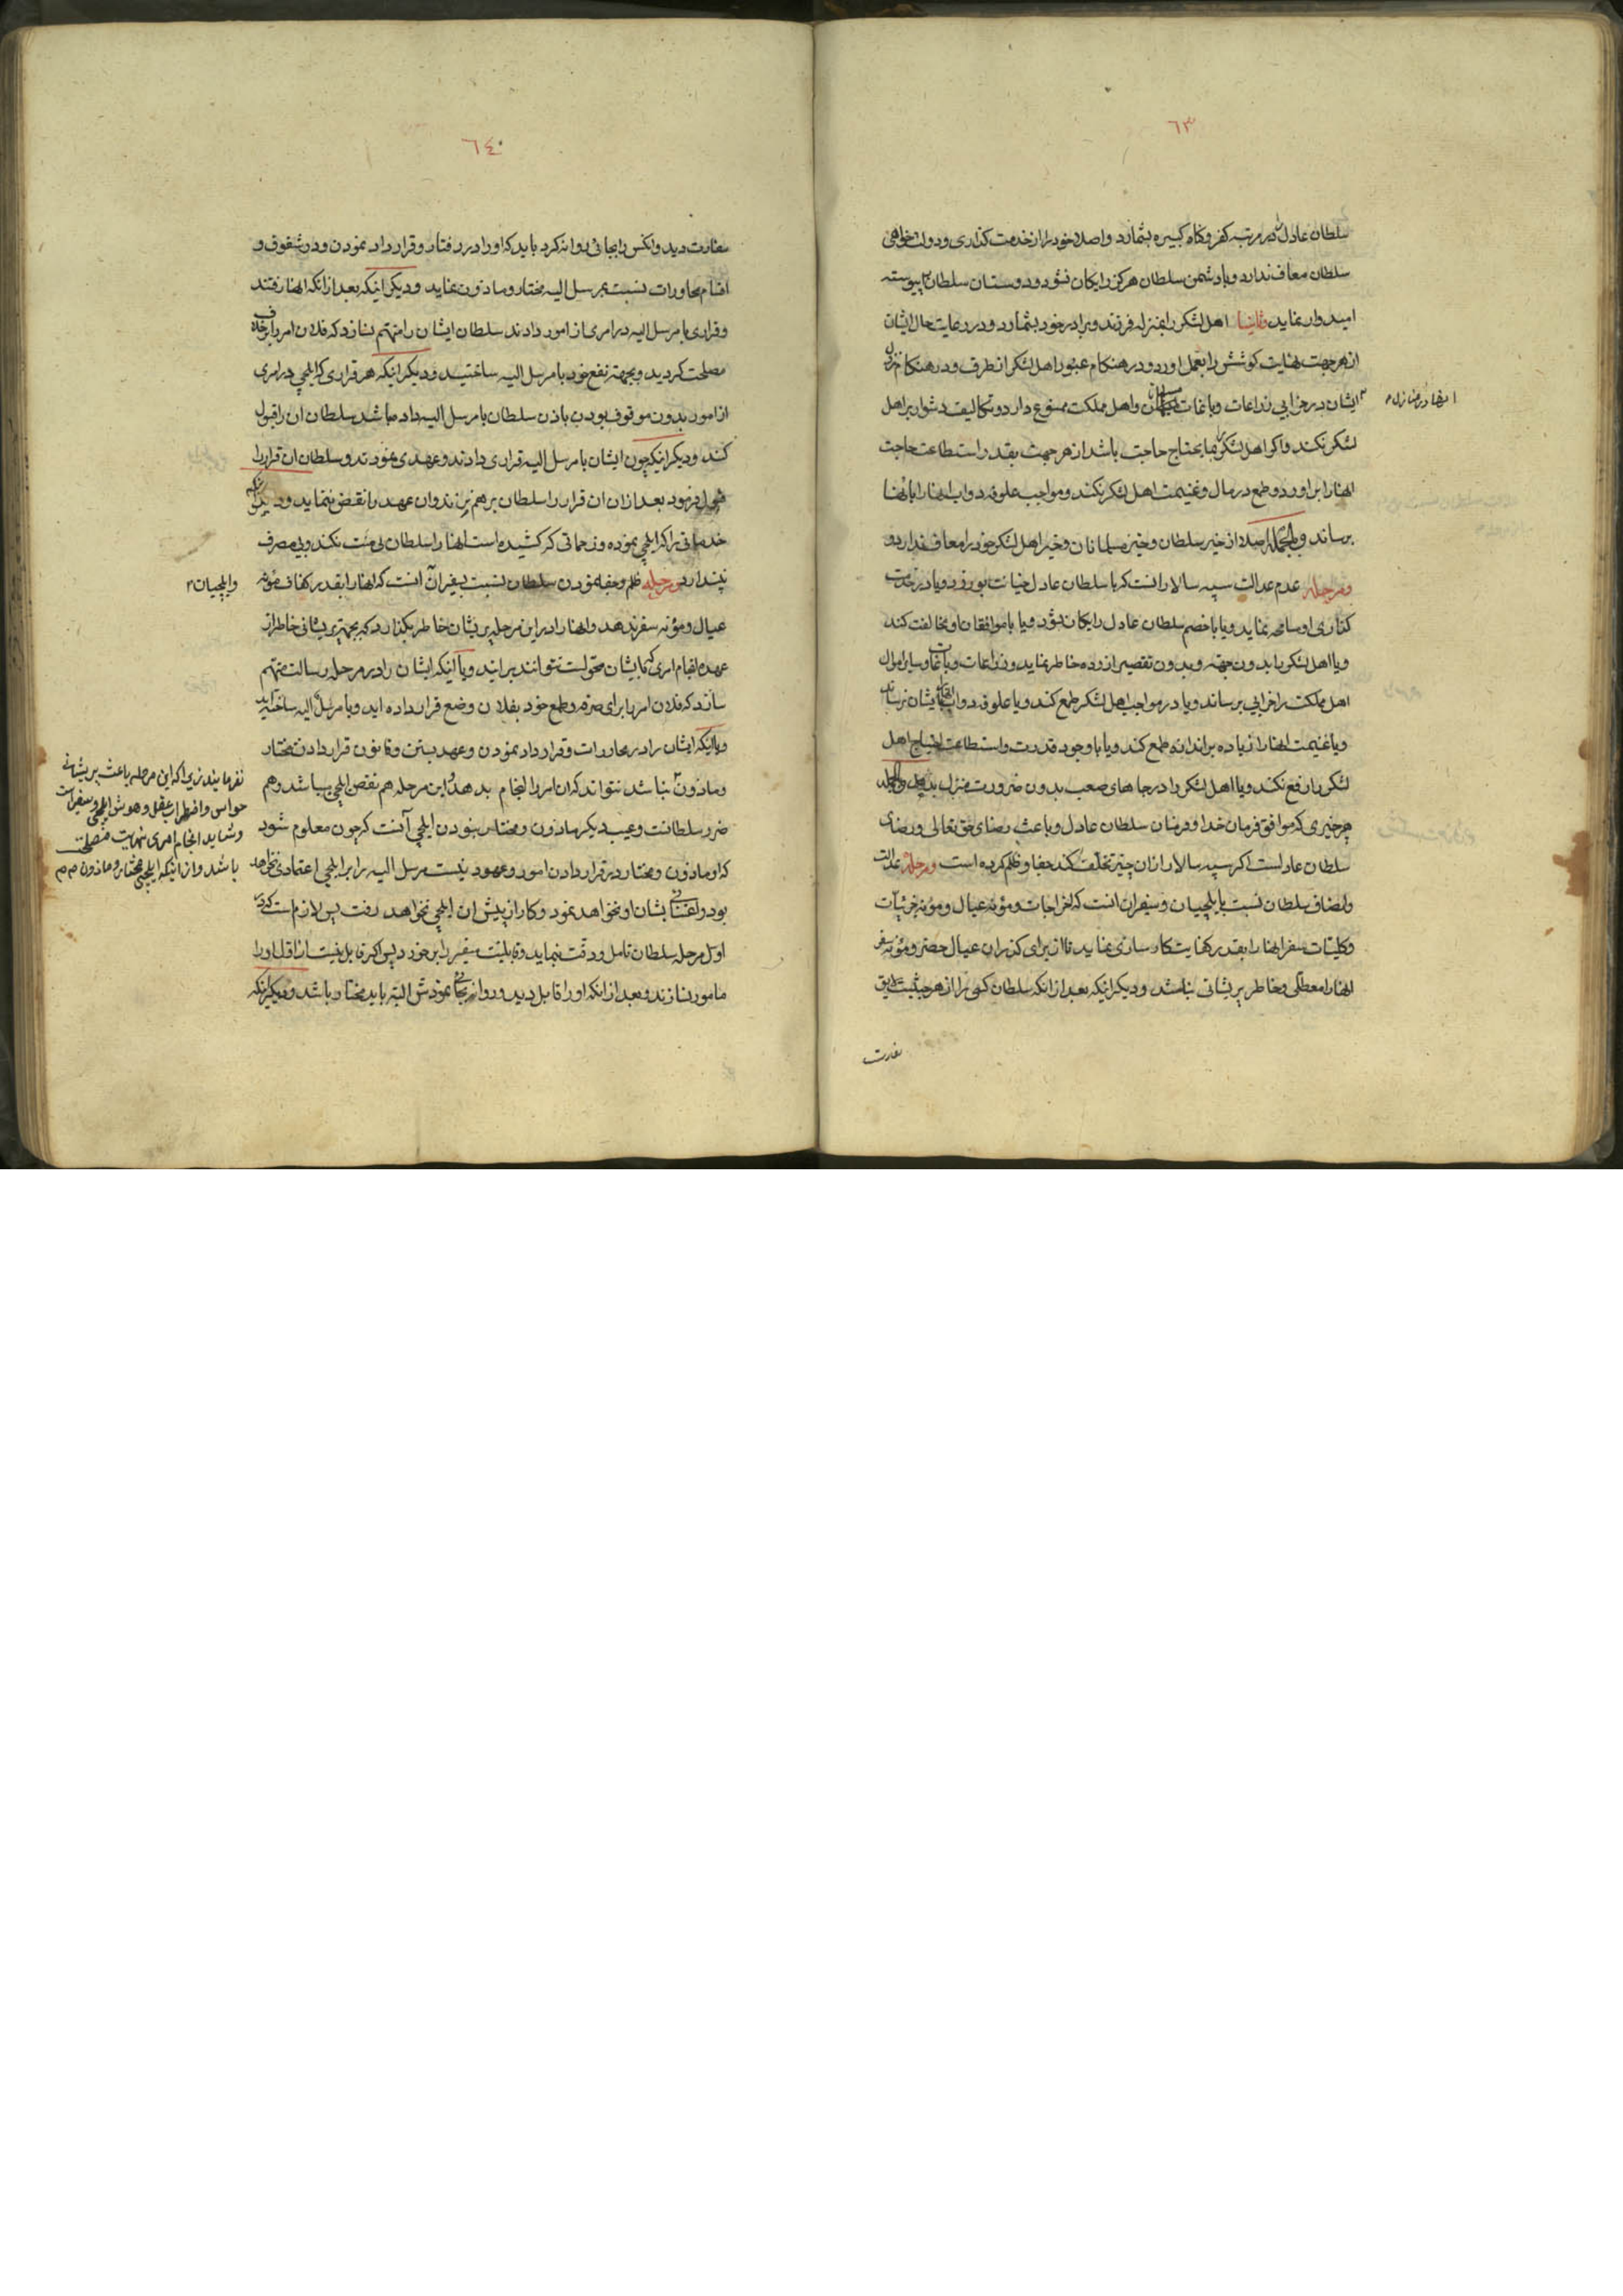 ٦٣
سلطان عادل در مرتبه کفر و کناه کبیره بشمارد و اصلا خود را از خدمت کذاری و دولت خواهی
سلطان معاف ندارد و با دشمن سلطان هرکز رایکان نشود و دوستان سلطان پیوسته
امیدوار نماید وثانیا اهل لشکر را بمنزله فرزند و برادر خود بشمارد و در رعایت حال ایشان
از هر جهت نهایت کوشش را بعمل اورد و در هنکام عبور اهل لشکر از طرف و در هنکام نزول
ایشان در خرابی زراعات و باغات مسلمانان و اهل مملکت ممنوع دارد و تکالیف دشوار بر اهل
انها در منازل
لشکر نکند و اکر اهل لشکر بما یحتاج حاجت باشد از هر جهت بقدر استطاعت حاجت
انها را بر اورد و طمع در مال و غنیمت اهل لشکر نکند و مواجب علوفه دواب انها را بانها
برساند وبالجمله اصلا از خیر سلطان و خیر مسلمانان و خیر اهل لشکر خود را معاف ندارد و
ومرحله عدم عدالت سپه سالار انست که با سلطان عادل خیانت بورزد و یا در خدمت
کذاری او مسامحه نماید و یا با خصم سلطان عادل رایکان شود و یا با موافقان او مخالفت کند
و یا اهل لشکر را بدون جهة و بدون تقصیر ازرده خاطر نماید و زراعات و باغات و سایر اموال
اهل مملکت را خرابی برساند و یا در مواجب اهل لشکر طمع کند و یا علوفه دواب بایشان نرساند
و یا غنیمت انها را زیاده بر اندازه طمع کند و یا با وجود قدرت و استطاعت احتیاج اهل
لشکر را رفع نکند و یا اهل لشکر را در جاهای صعب بدون ضرورت منزل بدهد وبالجمله
هر چیزی که موافق فرمان خدا و فرمان سلطان عادل و باعث رضای حق تعالی و رضای
سلطان عادلست اکر سپه سالار از ان چیز تخلف کند جفا و ظلم کرده است ومرحلهٔ عدالت
و انصاف سلطان نسبت بایلچیان و سفیران انست که اخراجات و مؤنه عیال و مؤنه جزئیات
و کلیات سفر انها را بقدر کفایت کار سازی نماید تا از برای کذران عیال حضر و مؤنه سفر
انها را معطلی و خاطر پریشانی نباشد و دیکر اینکه بعد از انکه سلطان کسی را از هر حیثیت لایق
سفارت
٦٤
سفارت دید و انکس را بجائی روانه کرد باید که او را در رفتار و قرار داد نمودن و در شقوق و
اقسام محاورات نسبت بمرسل الیه مختار و ماذون نماید و دیکر اینکه بعد از انکه انها رفتند
و قراری با مرسل الیه در امری از امور دادند سلطان ایشان را متهم نسازد که فلان امر را خلاف
مصلحت کردید و بجهة نفع خود با مرسل الیه ساختید و دیکر اینکه هر قراری که ایلچی در امری
از امور بدون موقوف بودن باذن سلطان با مرسل الیه داده باشد سلطان ان را قبول
کند و دیکر اینکه چون ایشان با مرسل الیه قراری دادند و عهدی نمودند و سلطان ان قرار را
قبول فرمود بعد از ان ان قرار را سلطان بر هم نزند و ان عهد را نقض ننماید و دیکر
خدماتی را که ایلچی نموده و زحماتی که کشیده است انها را سلطان بی منت نکند و بی مصرف
نپندارد ومرحله ظلم و جفا نمودن سلطان نسبت بسفیران آنست که انها را بقدر کفاف مؤنه
وایلچیان
عیال و مؤنه سفر ندهد و انها را در این مرحله پریشان خاطر بکذارد که بجهة پریشانی خاطر از
عهده انجام امری که بایشان محولست نتوانند بر ایند و یا اینکه ایشان را در مرحله رسالت متهم
سازد که فلان امر را برای صرفه و طمع خود بفلان وضع قرار داده اید و با مرسل الیه ساخته اید
و یا اینکه ایشان را در محاورات و قرار داد نمودن و عهد بستن و قانون قرار دادن مختار
نفرمایند زیرا که این مرحله باعث پریشانی
حواس و اضطراب عقل و هوش ایلچی و سفیر است
و شاید انجام امری نهایت مصلحت
باشد و از اینکه ایلچی مختار و ماذون
و ماذون نباشد نتواند که ان امر را انجام بدهد و این مرحله هم نقص ایلچی میباشد و هم
ضرر سلطانست و عیب دیکر ماذون و مختار نبودن ایلچی آنست که چون معلوم شود
که او ماذون و مختار در قرار دادن امور و عهود نیست مرسل الیه را بر ایلچی اعتمادی نخواهد
بود و اعتنائی بشان او نخواهد نمود و کار از پیش ان ایلچی نخواهد رفت پس لازم است که در
اوّل مرحله سلطان تامل و دقت بنماید و قابلیت سفیر را بر خورد پس اکر قابل نیست از اول او را
مامور نسازند و بعد از انکه او را قابل دید و روانه بجائی نمودش البته باید مختار باشد و دیکر اینکه